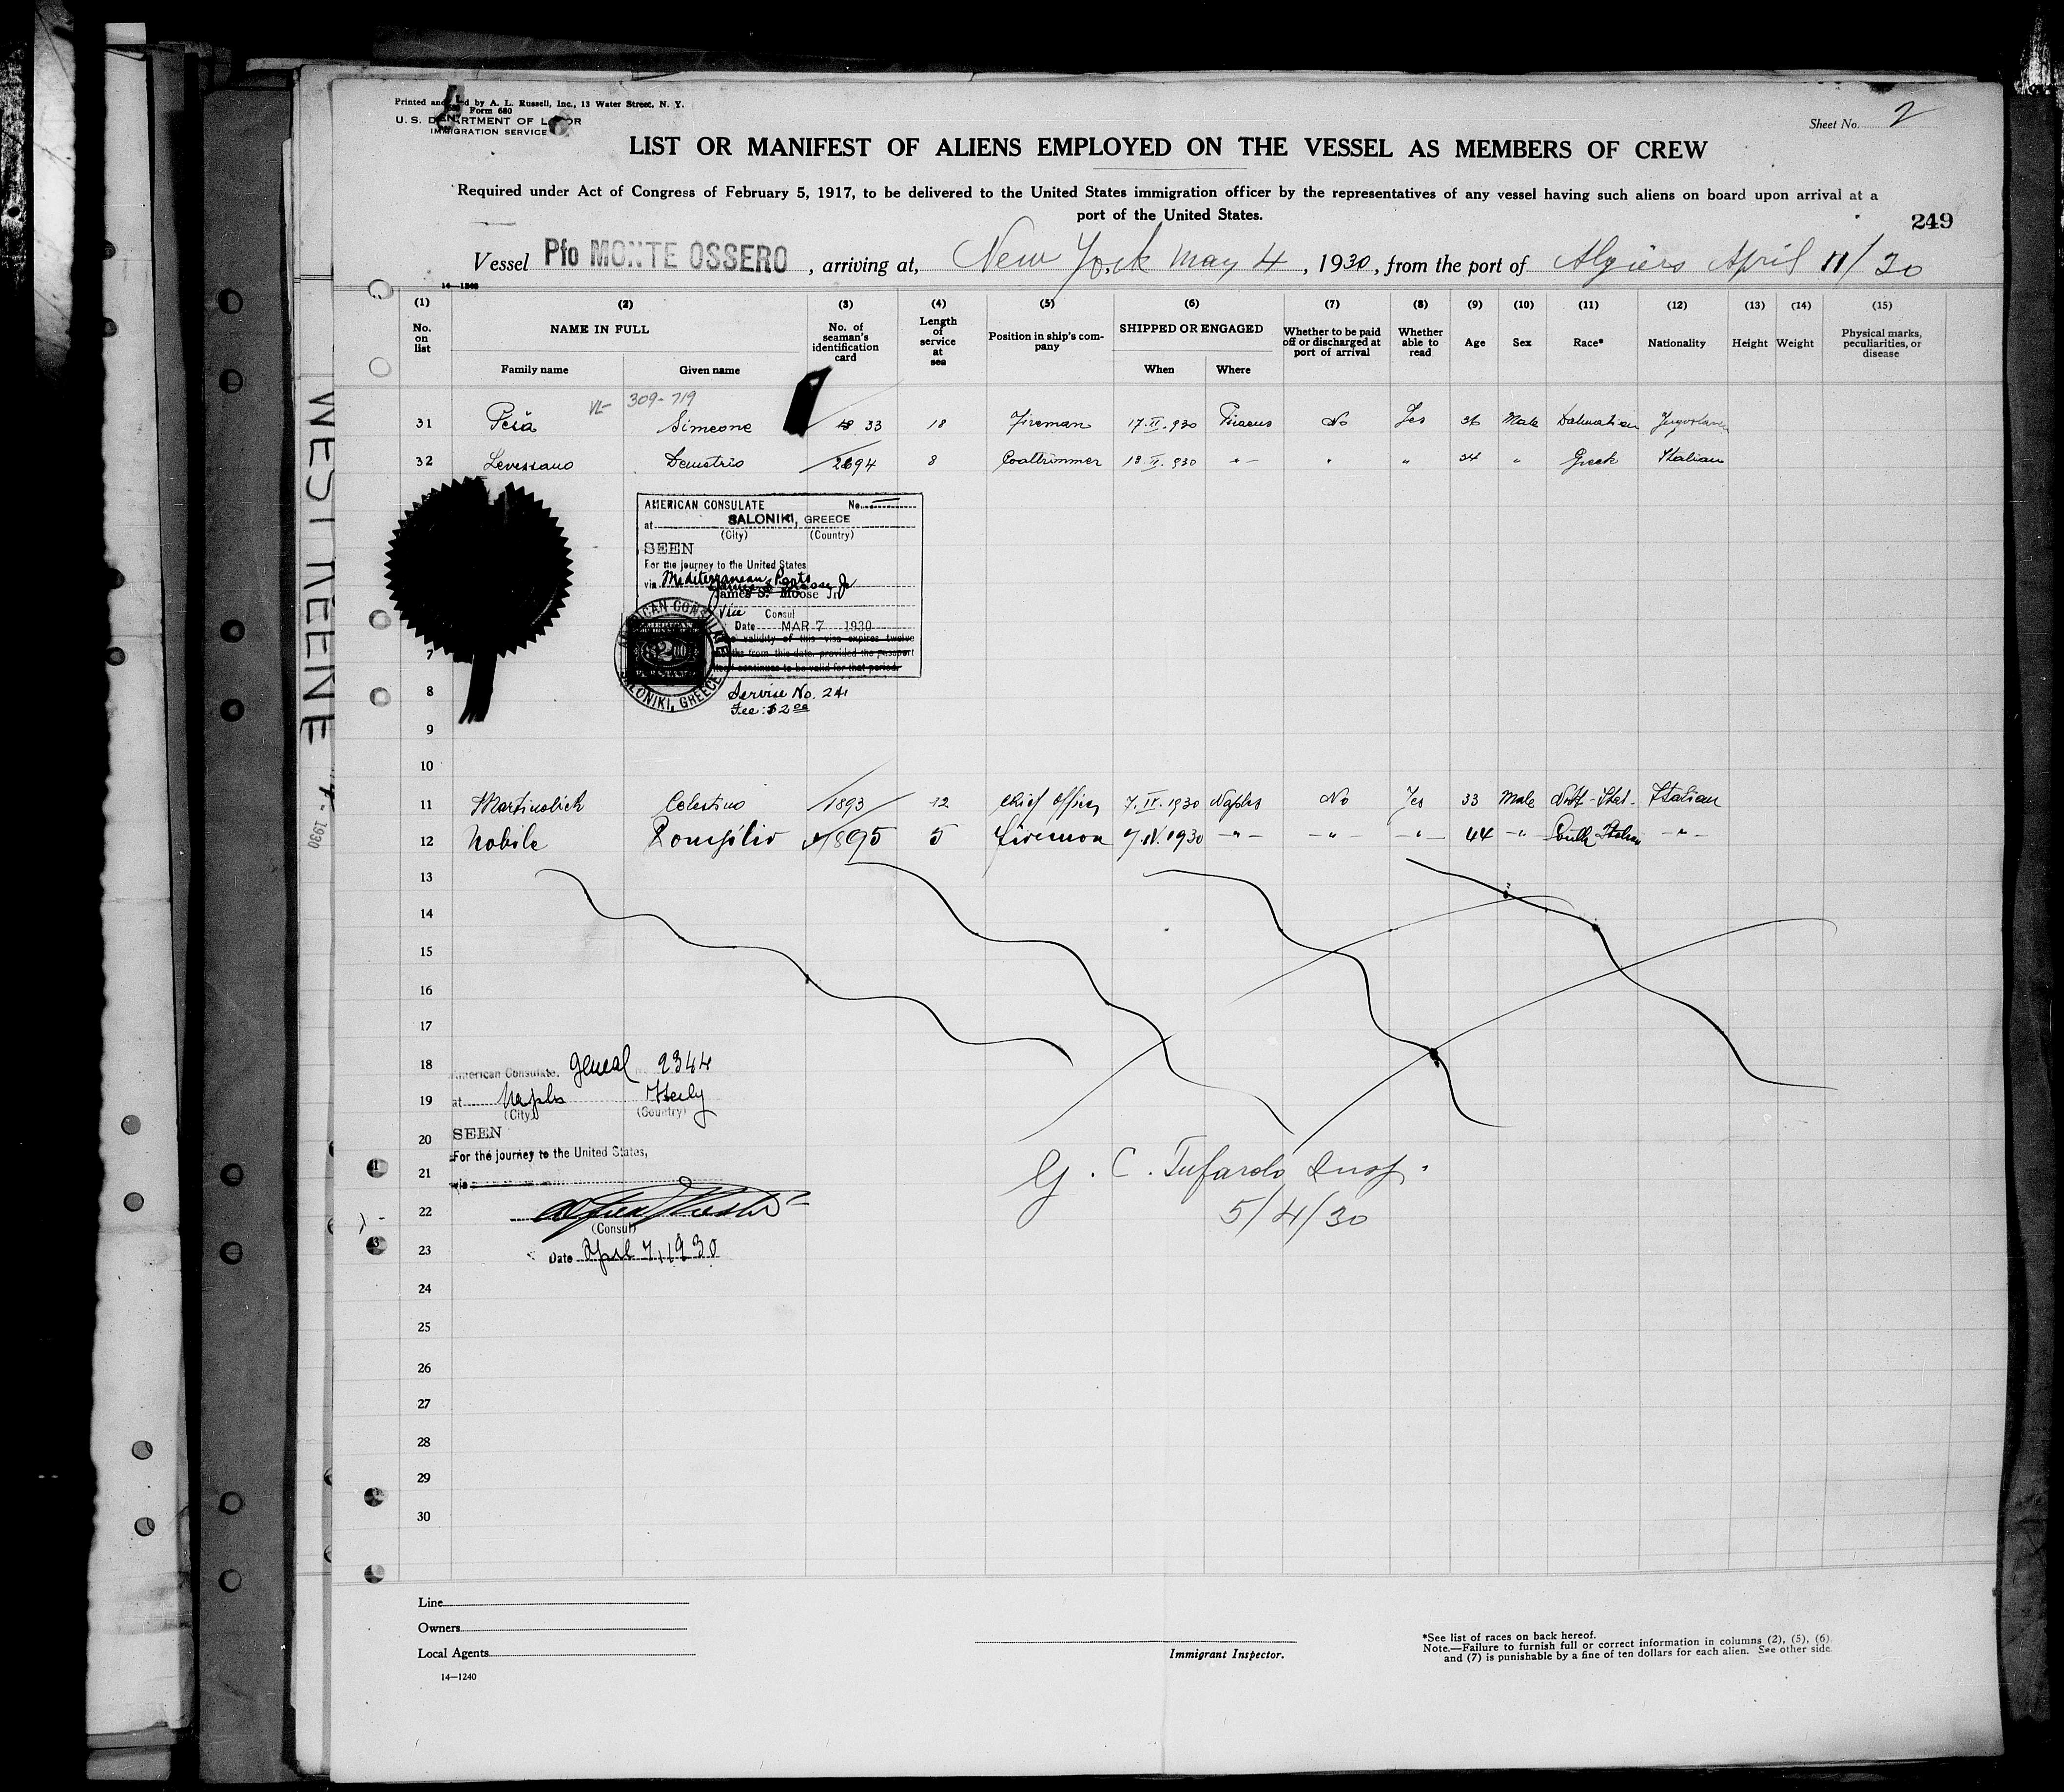 Printed and by A. L. Russell, Inc., 13 Water Street, N. Y.
Form 680
U. S. DEPARTMENT OF LABOR
IMMIGRATION SERVICE
Sheet No. 2
LIST OR MANIFEST OF ALIENS EMPLOYED ON THE VESSEL AS MEMBERS OF CREW
Required under Act of Congress of February 5, 1917, to be delivered to the United States immigration officer by the representatives of any vessel having such aliens on board upon arrival at a
port of the United States.
249
Vessel Pfo MONTE OSSERO, arriving at, New York May 4, 1930, from the port of Algiers April 11/30
14—1240
(1) (2) (3) (4) (5) (6) (7) (8) (9) (10) (11) (12) (13) (14) (15)
No. on list NAME IN FULL No. of seaman's identification card Length of service at sea Position in ship's company SHIPPED OR ENGAGED Whether to be paid off or discharged at port of arrival Whether able to read Age Sex Race* Nationality Height Weight Physical marks, peculiarities, or disease
Family name Given name When Where
309-719
31 Simeone 33 18 Fireman 17.II.930 Piraeus No Yes 36 Male Dalmatian Jugoslavian
32 Levessano Demetrio 2694 8 Coaltrimmer 18.II.930 -"- " " 34 " Greek Italian
AMERICAN CONSULATE No.
at SALONIKI, GREECE
(City) (Country)
SEEN
For the journey to the United States
via Mediterranean Ports
James S. Moose Jr
Vice Consul
Date MAR 7 1930
The validity of this visa expires twelve
months from this date, provided the passport
itself continues to be valid for that period.
AMERICAN CONSULATE
SALONIKI, GREECE
$2.00
Service No. 241
Fee: $2.00
7
8
9
10
11 Martinolich Celestino 1893 12 Chief Officer 7.IV.1930 Naples No Yes 33 Male North-Ital. Italian
12 Nobile Pompilio 1895 5 Fireman 7.IV.1930 -"- -"- -"- 44 -"- South Italian -"-
13
14
15
16
17
18 American Consulate General 2344
19 at Naples Italy
(City) (Country)
20 SEEN
For the journey to the United States,
21 via
22
(Consul)
23 Date April 7, 1930
G. C. Tufarolo Insp.
5/4/30
24
25
26
27
28
29
30
Line
Owners
Local Agents
14—1240
Immigrant Inspector.
*See list of races on back hereof.
Note.—Failure to furnish full or correct information in columns (2), (5), (6)
and (7) is punishable by a fine of ten dollars for each alien. See other side.
WESTNEENE
1930